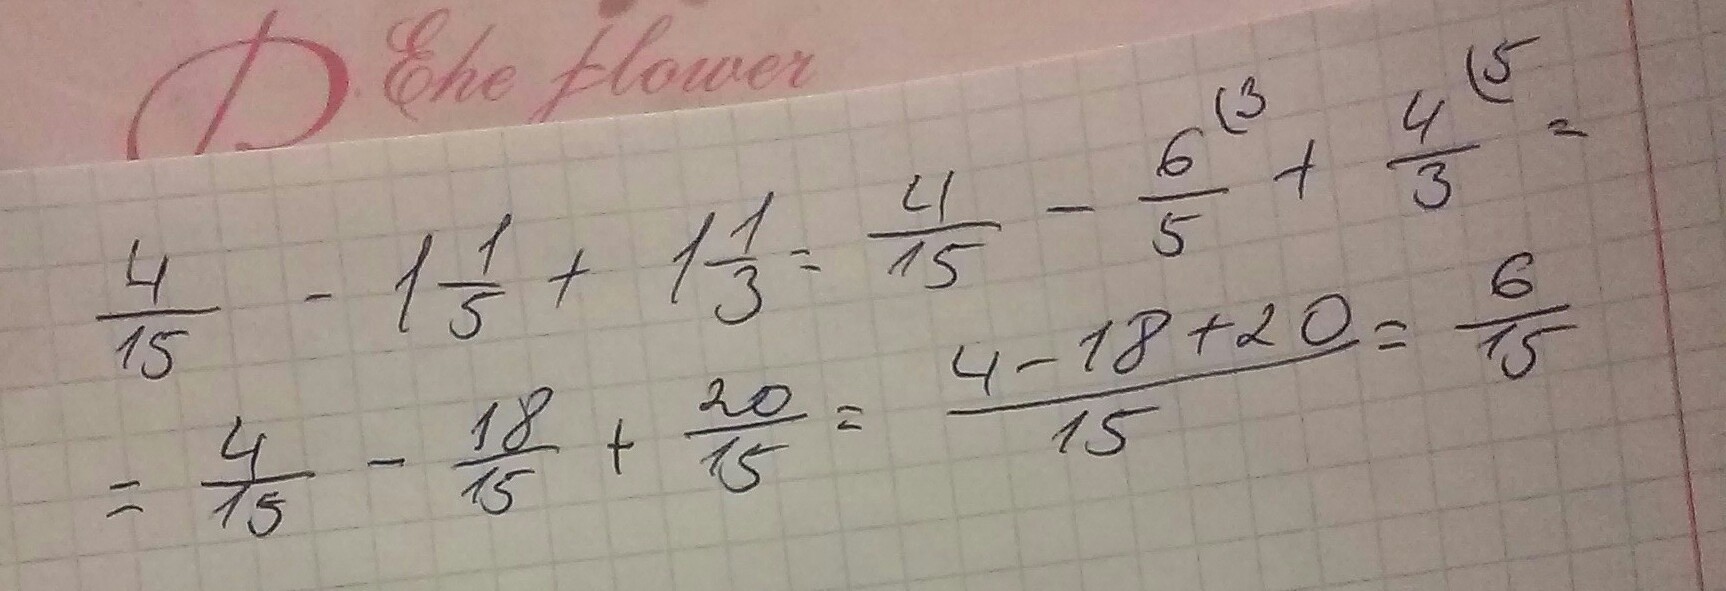 The flower
4/15 - 1 1/5 + 1 1/3 = 4/15 - 6/5 (3 + 4/3 (5 =
= 4/15 - 18/15 + 20/15 = 4-18+20/15 = 6/15